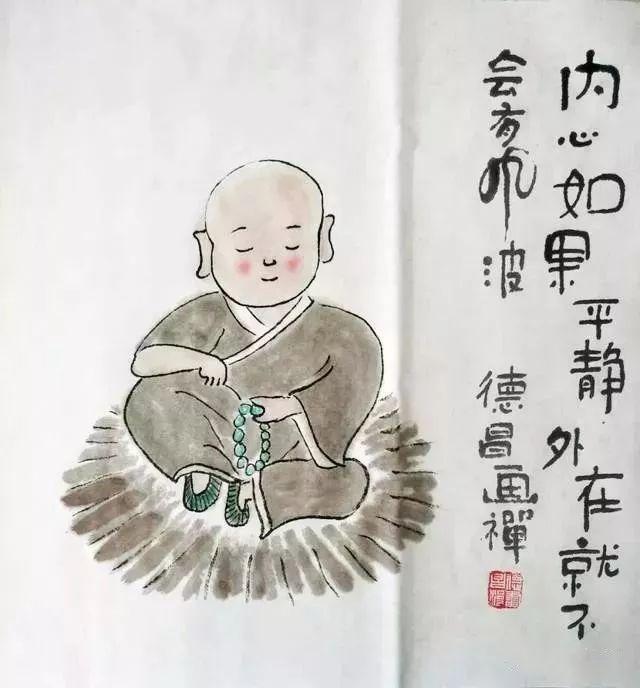 内心如果平静外在就不
会有风波
德昌画禅